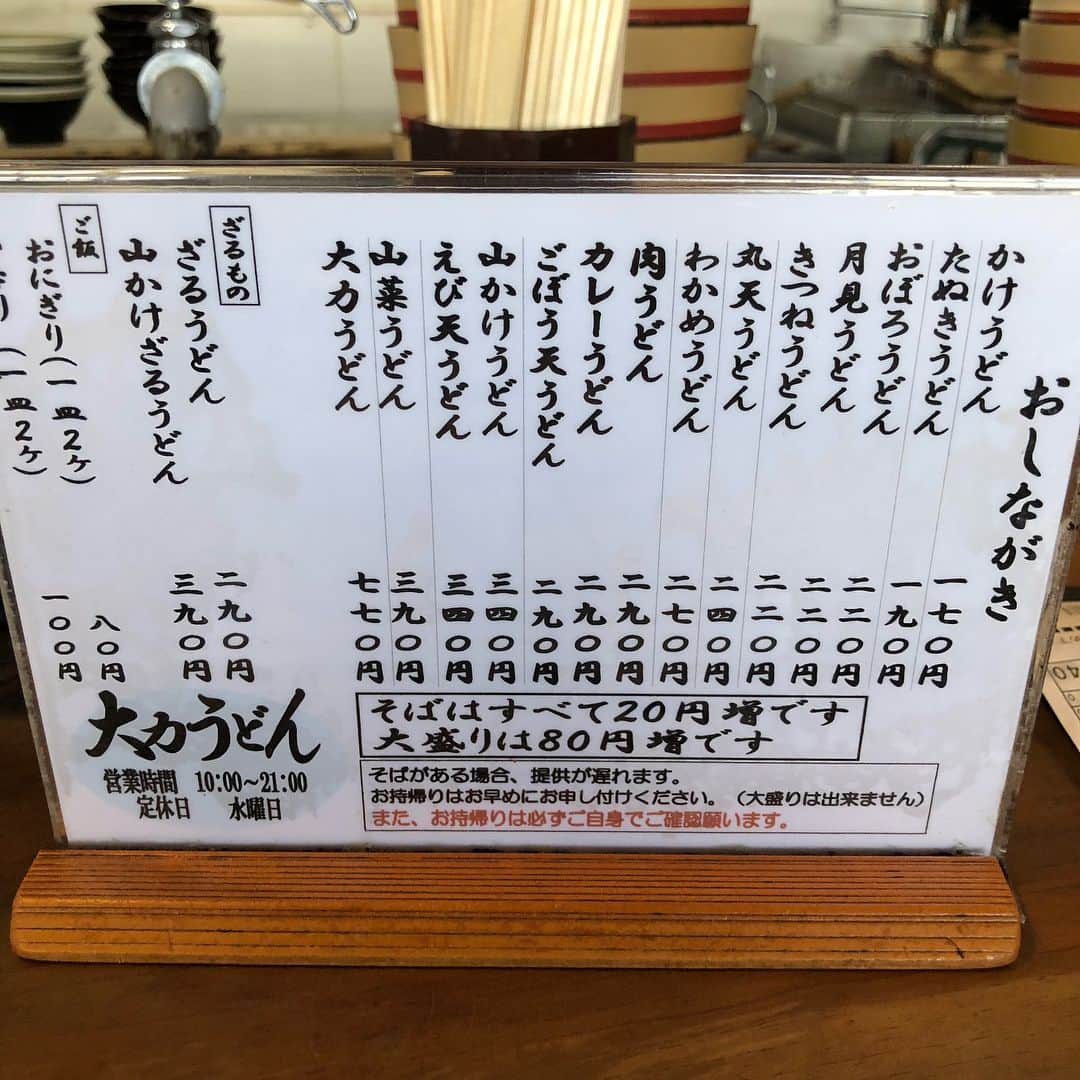 おしながき
かけうどん 一七〇円
たぬきうどん 一九〇円
おぼろうどん 二二〇円
月見うどん 二二〇円
きつねうどん 二二〇円
丸天うどん 二四〇円
わかめうどん 二七〇円
肉うどん 二九〇円
カレーうどん 二九〇円
ごぼう天うどん 二九〇円
山かけうどん 三四〇円
えび天うどん 三四〇円
山菜うどん 三九〇円
大力うどん 七七〇円
ざるもの
ざるうどん 二九〇円
山かけざるうどん 三九〇円
ご飯
おにぎり(一皿2ヶ) 八〇円
り(一皿2ヶ) 一〇〇円
そばはすべて20円増です
大盛りは80円増です
そばがある場合、提供が遅れます。
お持帰りはお早めにお申し付けください。(大盛りは出来ません)
また、お持帰りは必ずご自身でご確認願います。
大力うどん
営業時間 10:00~21:00
定休日 水曜日